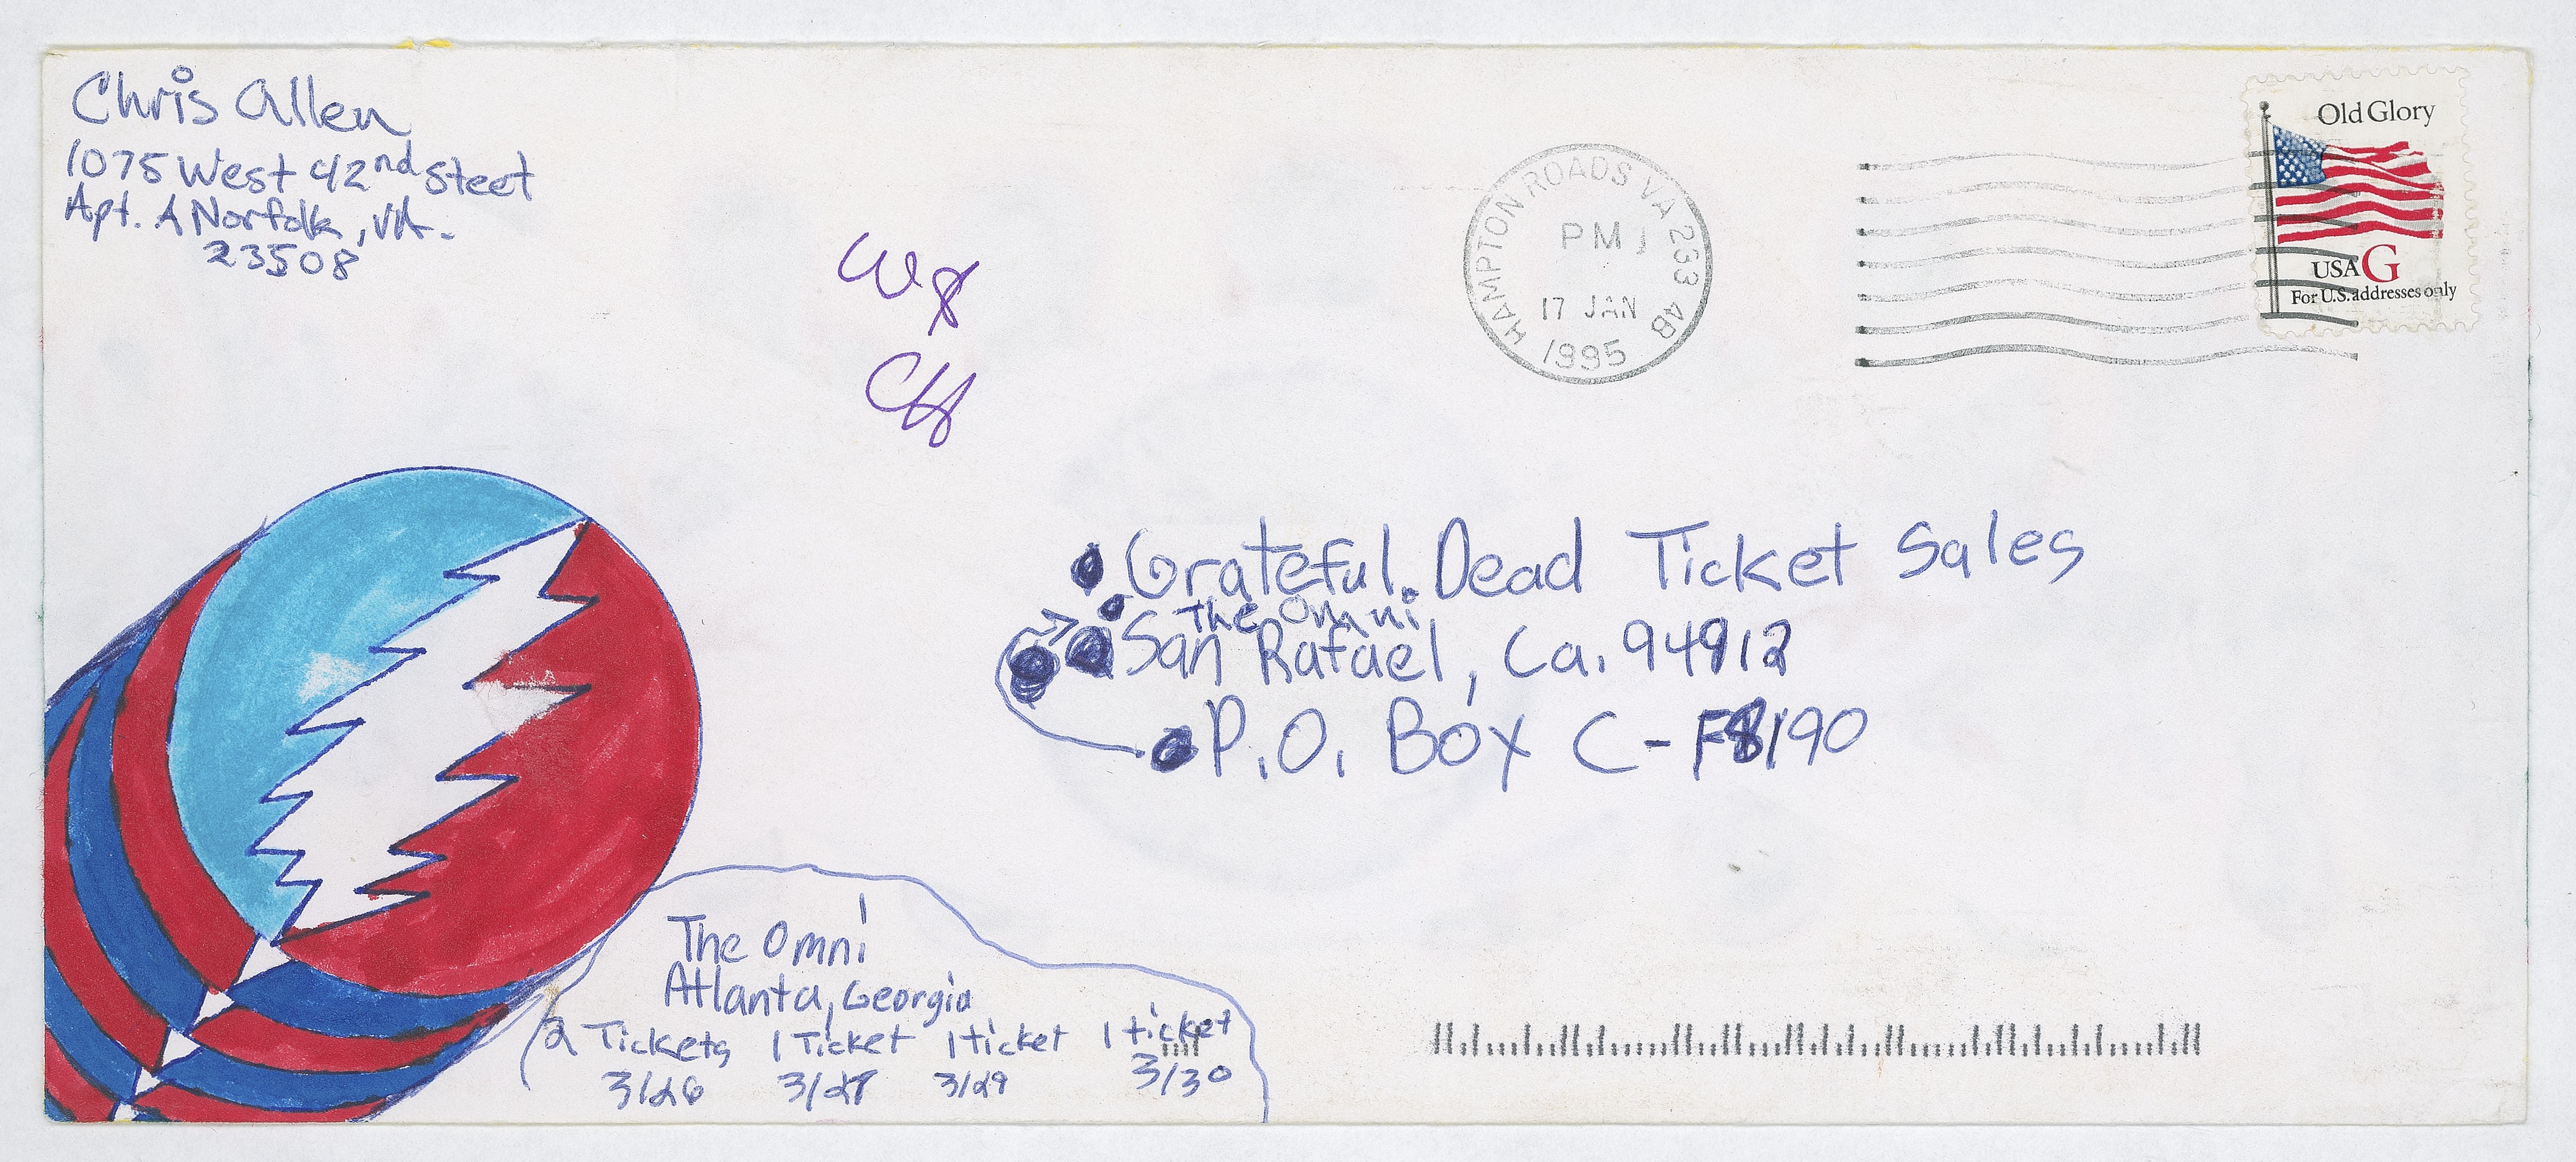 Chris Allen
1075 West 42nd Steet
Apt. A Norfolk, VA.
23508
HAMPTON ROADS VA 233 4B
PM
17 JAN
1995
Old Glory
USA G
For U.S. addresses only
Grateful Dead Ticket Sales
The Omni
San Rafael, Ca. 94912
P.O. Box C-F8190
The Omni
Atlanta, Georgia
2 Tickets 1 Ticket 1 ticket 1 ticket
3/26 3/28 3/29 3/30